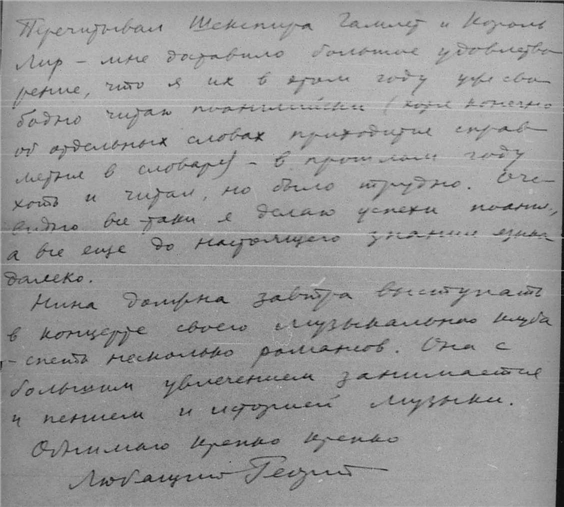 Перечитывал Шекспира Гамлет и Король
Лир – мне доставило большое удовлетво
рение, что я их в этом году уже сво
бодно читаю поанглийски (хотя конечно
об отдельных словах приходится справ
ляться в словаре) – в прошлом году
хоть и читал, но было трудно. Оче
видно все таки я делаю успехи поангл,
а все еще до настоящего знания языка
далеко.
Нина должна завтра выступать
в концерте своего музыкального клуба
– спеть несколько романсов. Она с
большим увлечением занимается
и пением и историей музыки.
Обнимаю крепко крепко
Любящий Георгий